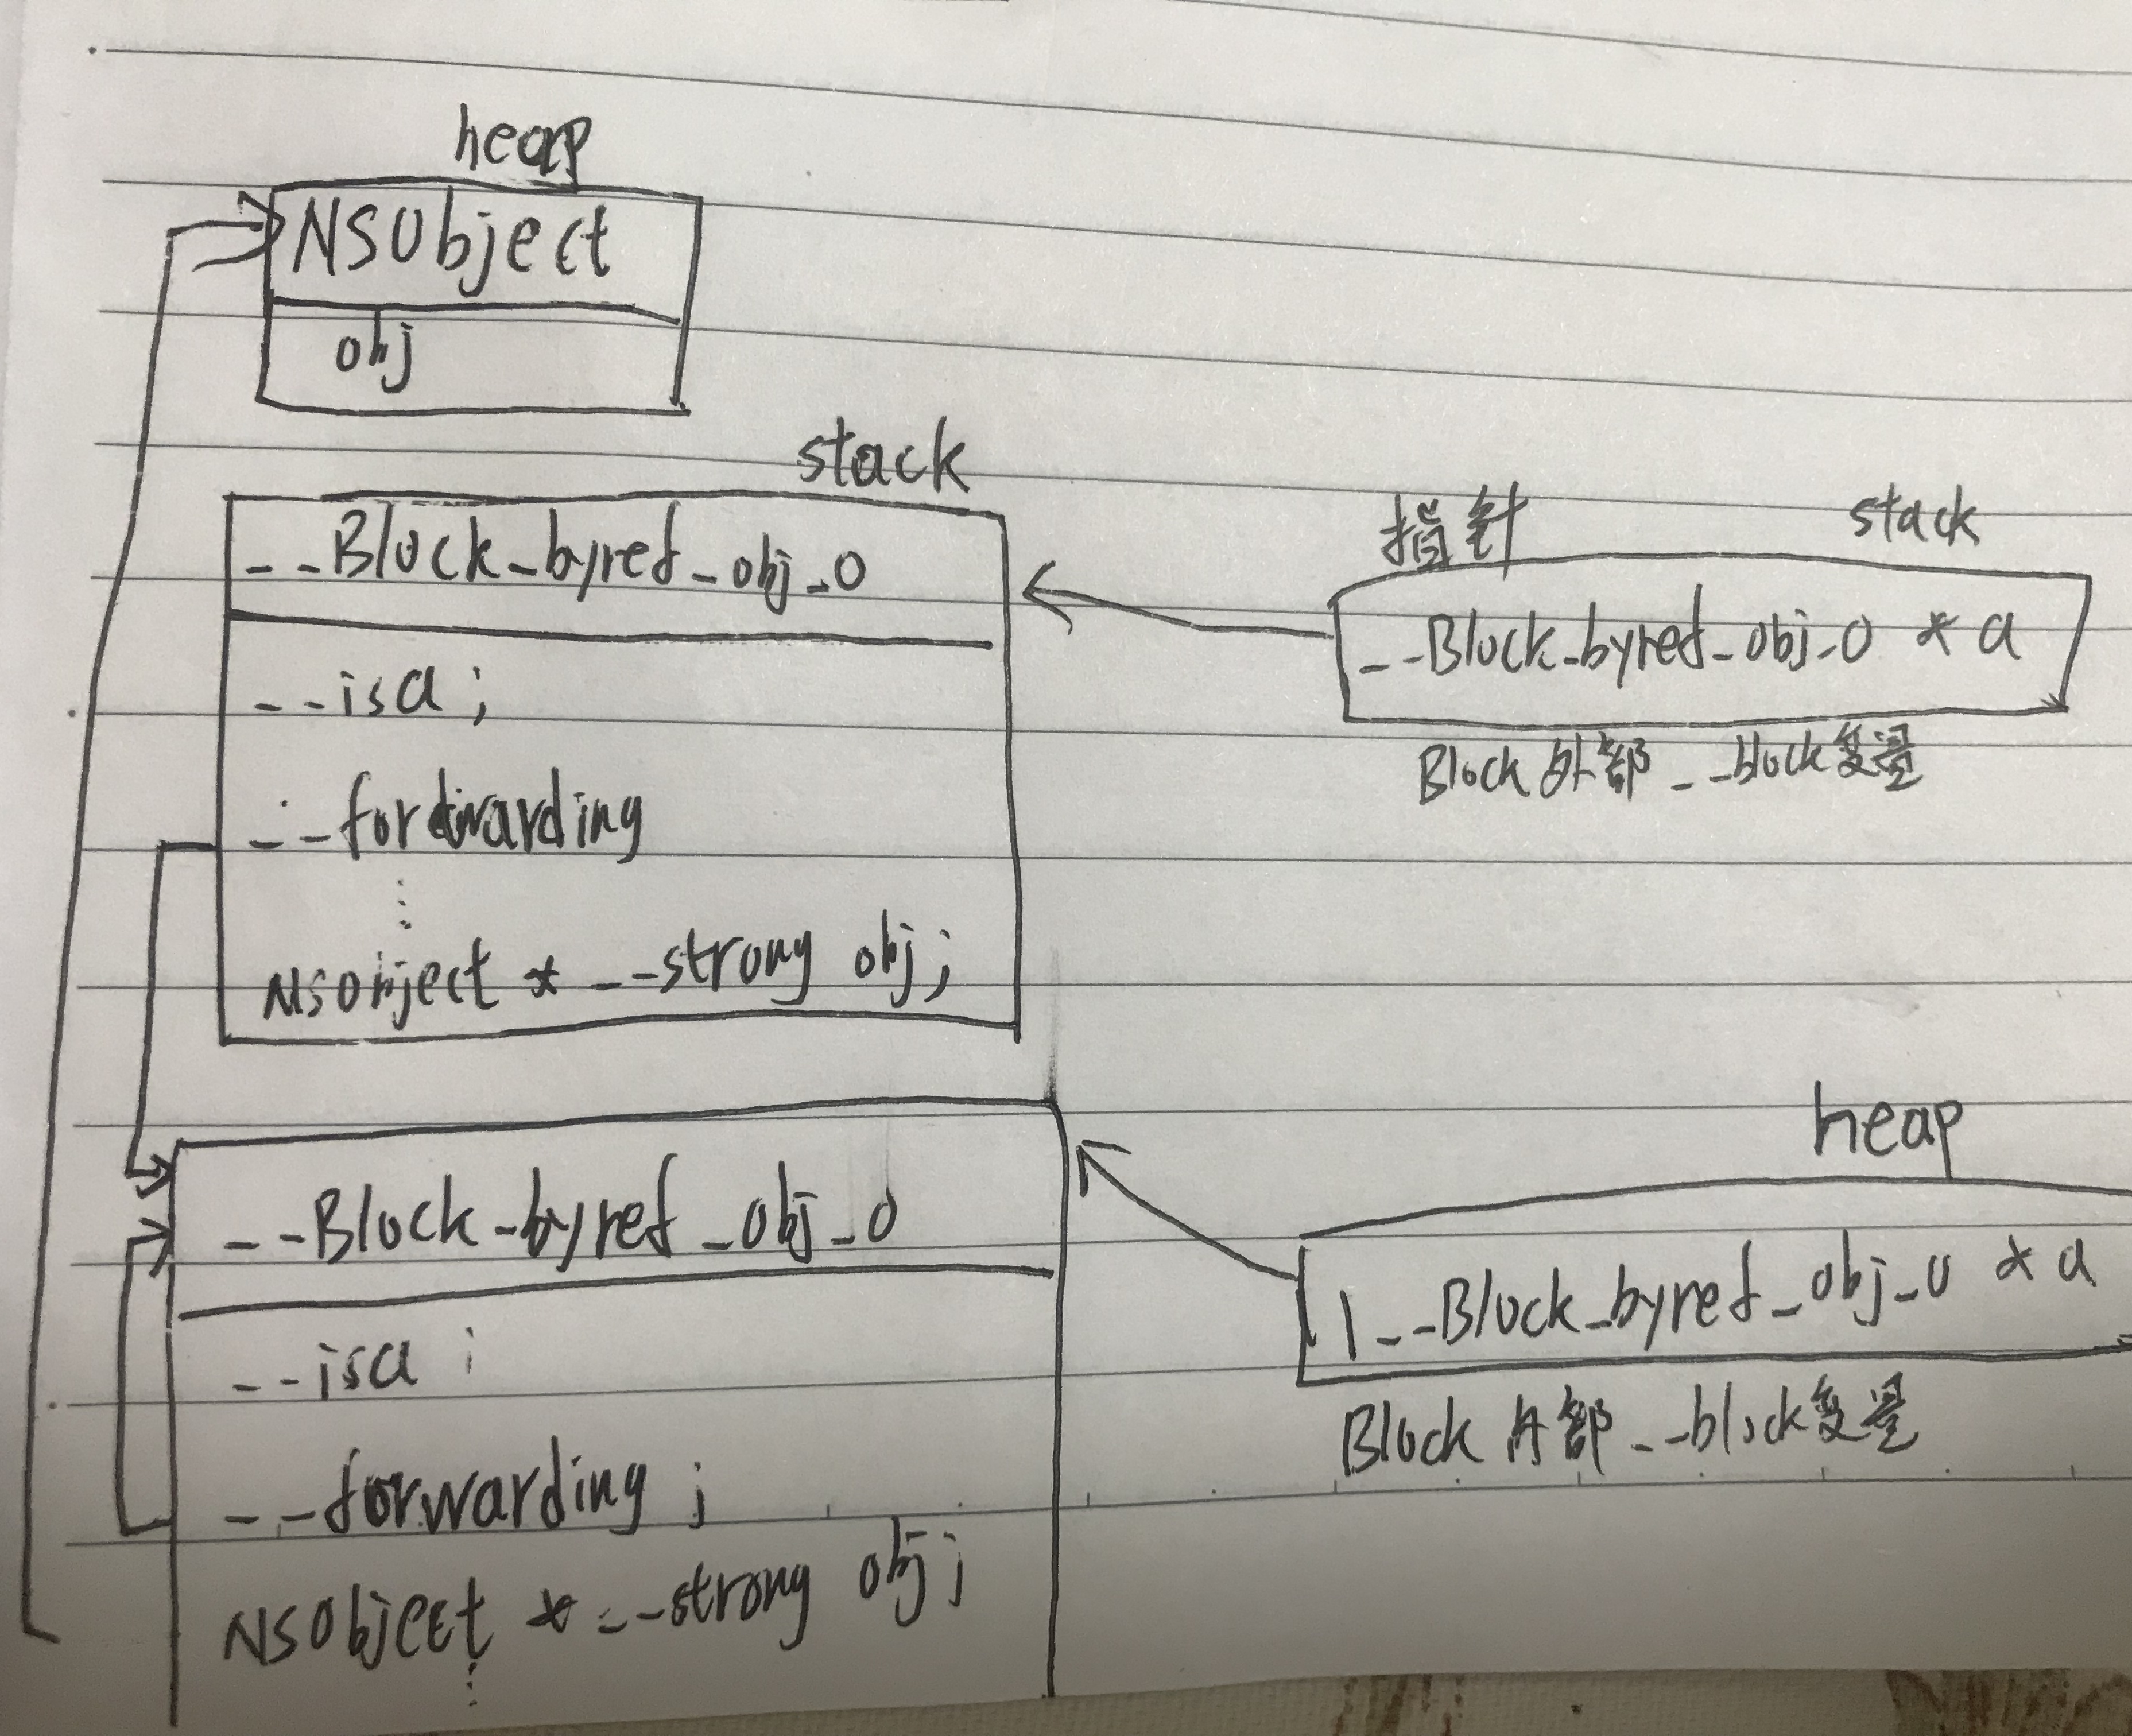 heap
NSObject
obj
stack
__Block_byref_obj_0
__isa;
__forwarding
NSObject * __strong obj;
指针 stack
__Block_byref_obj_0 * a
Block 外部 __block变量
__Block_byref_obj_0
__isa;
__forwarding;
NSObject * __strong obj;
heap
__Block_byref_obj_0 * a
Block 内部 __block变量